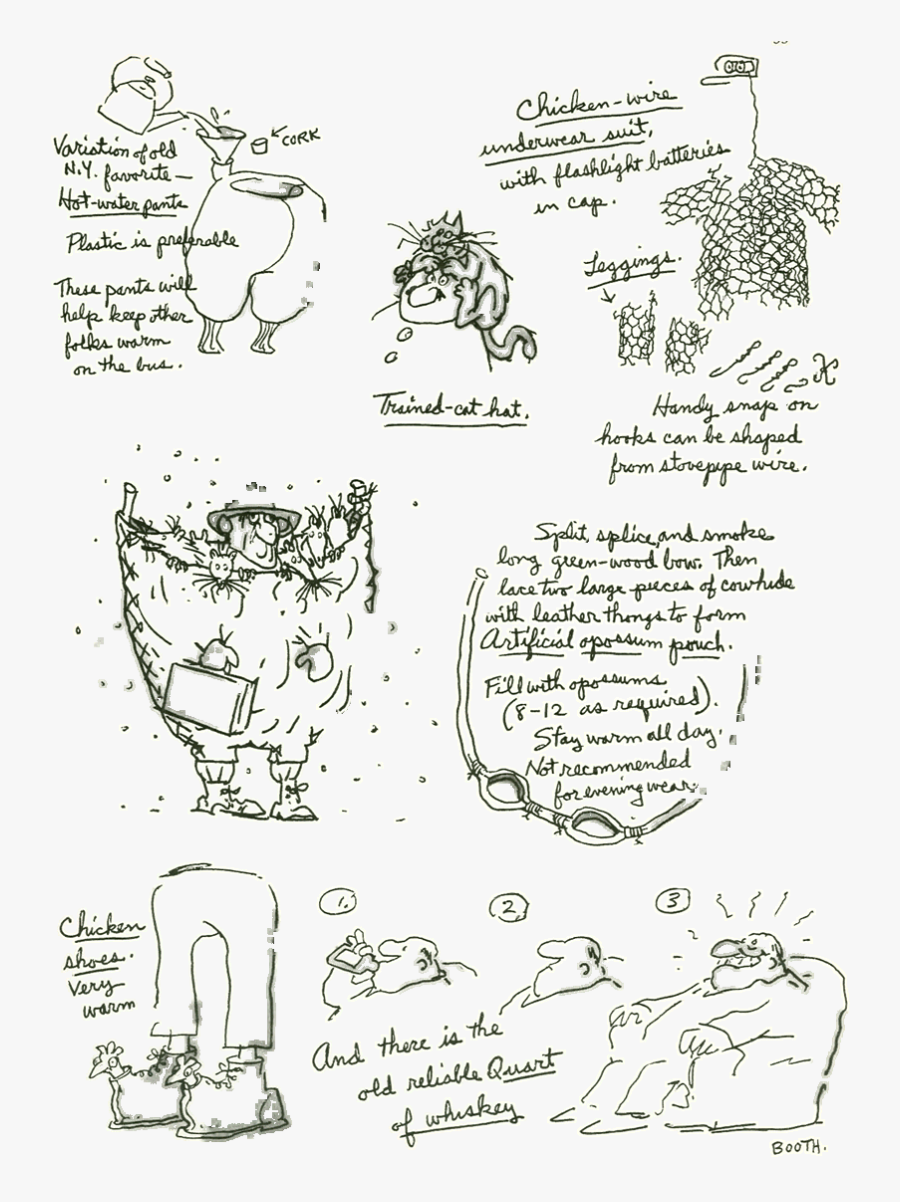 CORK
Variation of old
N.Y. favorite—
Hot-water pants
Plastic is preferable
These pants will
help keep other
folks warm
on the bus.
Chicken-wire
underwear suit,
with flashlight batteries
in cap.
Leggings.
Handy snap on
hooks can be shaped
from stovepipe wire.
Trained-cat hat.
Split, splice, and smoke
long green-wood bow. Then
lace two large pieces of cowhide
with leather thongs to form
Artificial opossum pouch.
Fill with opossums
(8-12 as required).
Stay warm all day.
Not recommended
for evening wear.
Chicken
shoes.
Very
warm
1.
2
3
And there is the
old reliable Quart
of whiskey
BOOTH.